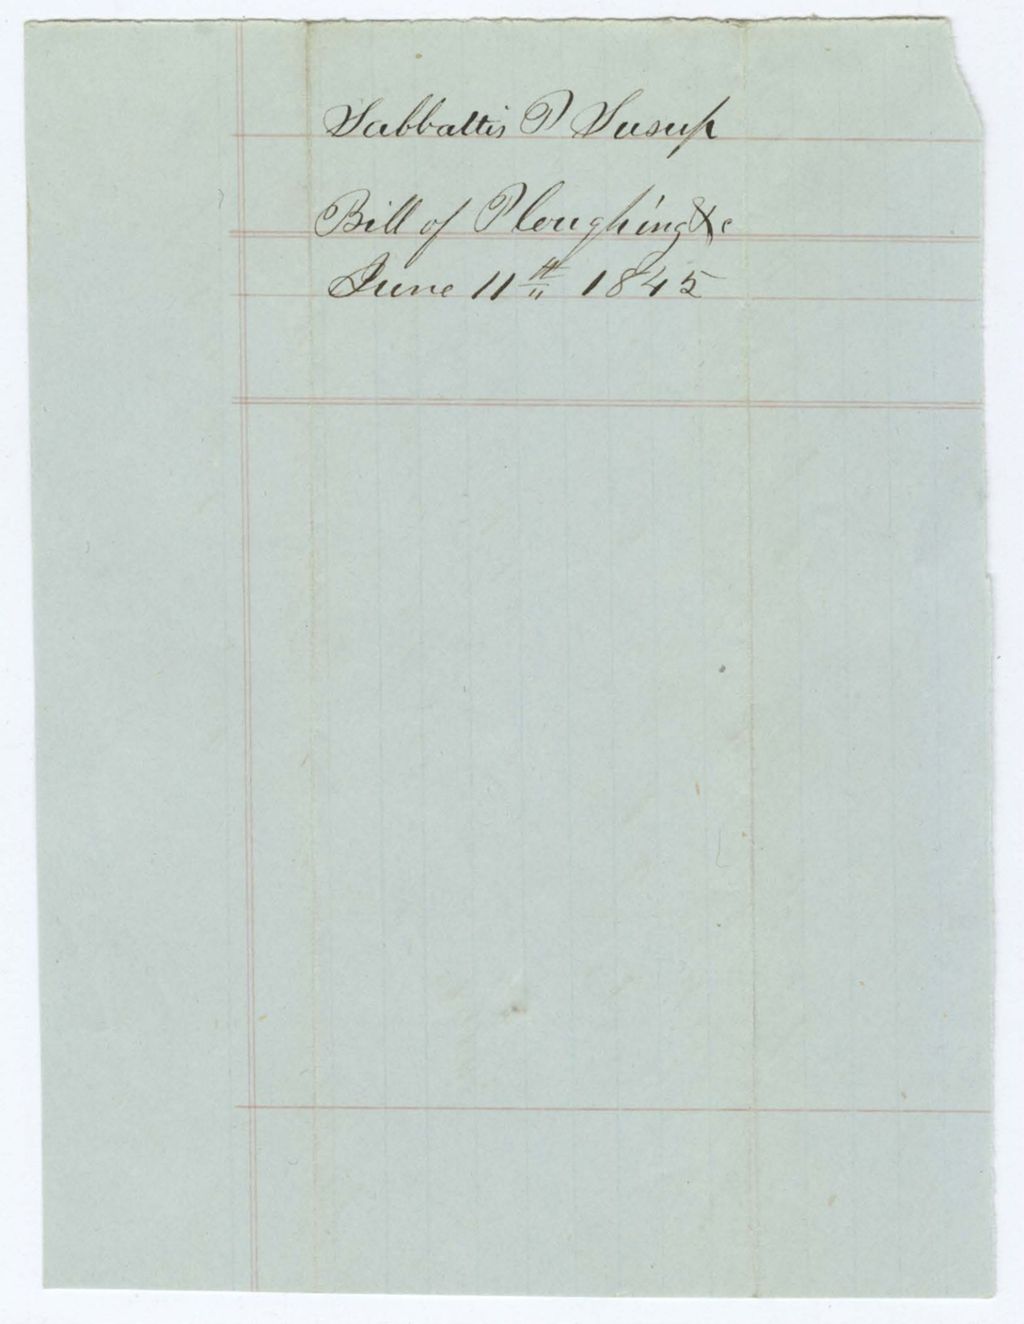 Sabbattis P Susup
Bill of Ploughing &c
June 11th 1845